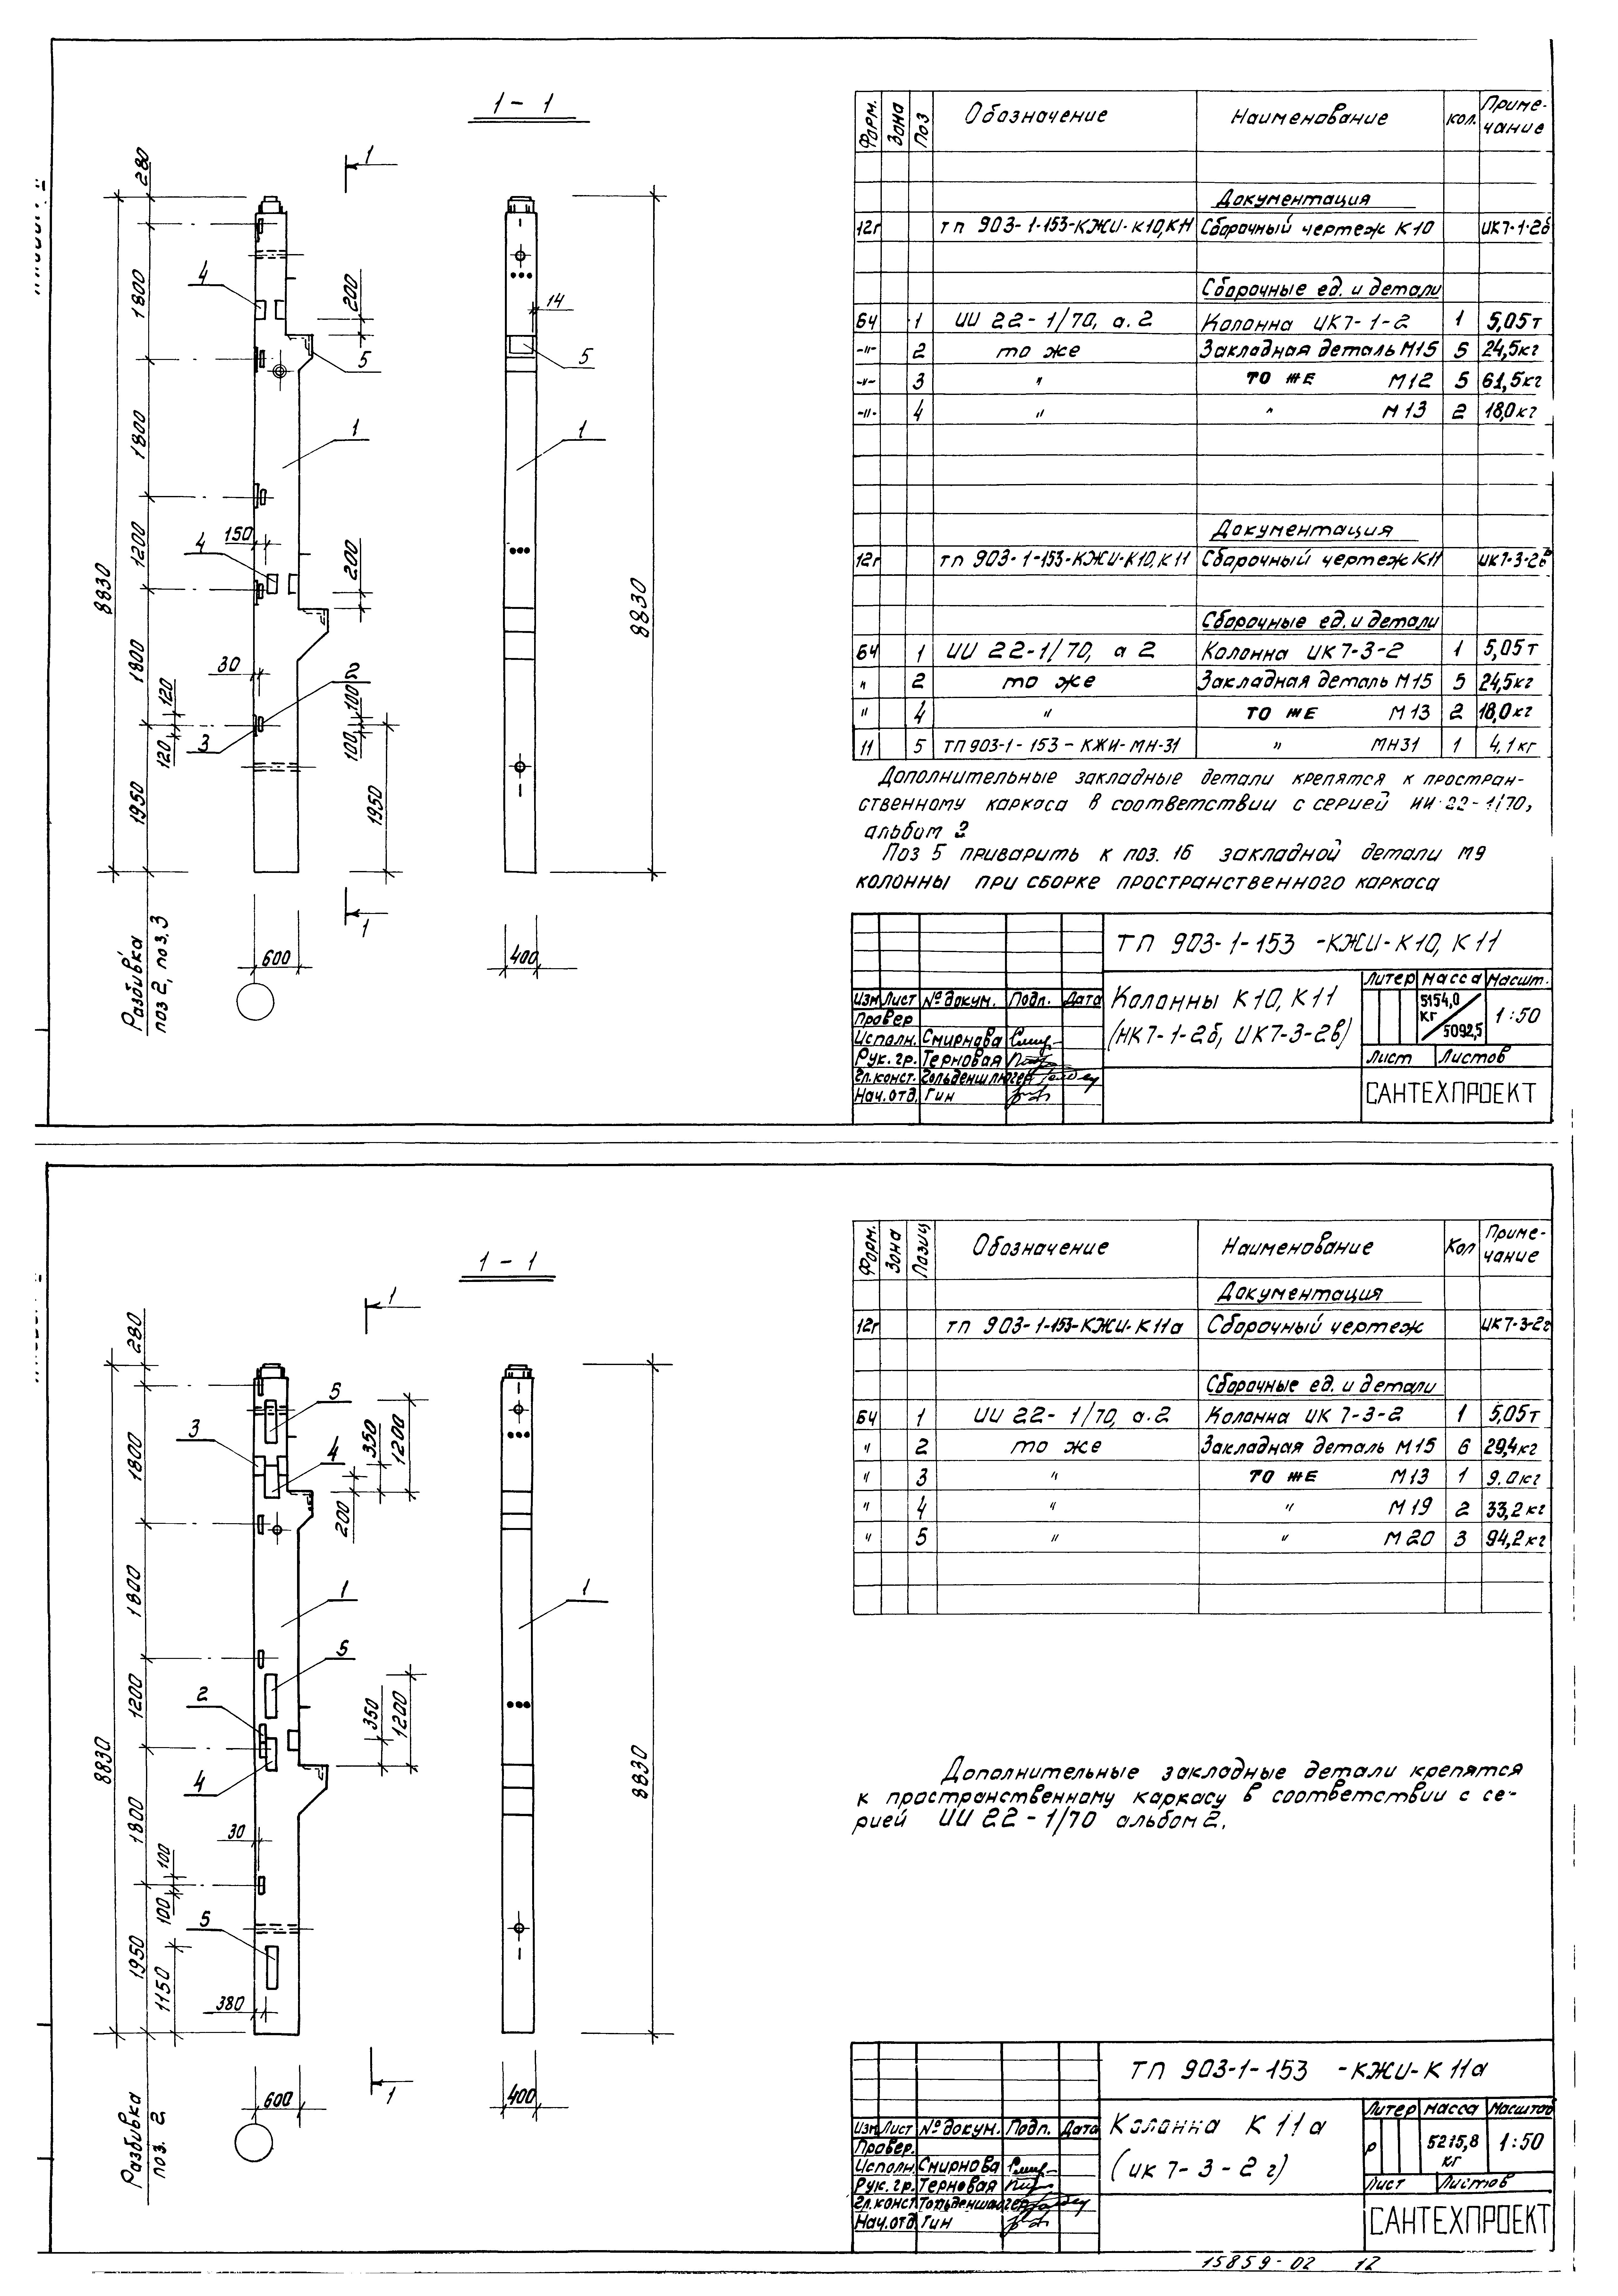 1 - 1
1
280
4
1800
200
14
5
5
1800
1
1
1200
4
150
200
8830
8830
1800
30
2
120
100
3
120
100
1950
1950
1
Разбивка
поз 2, поз. 3
600
400
Форм. Зона Поз Обозначение Наименование кол. Приме-
чание
Документация
12г ТП 903-1-153-КЖИ-К10,К11 Сборочный чертеж К10 ИК7-1-2б
Сборочные ед. и детали
БЧ 1 ИИ 22-1/70, а.2 Колонна ИК7-1-2 1 5,05т
-"- 2 то же Закладная деталь М15 5 24,5кг
-"- 3 " ТО ЖЕ М12 5 61,5кг
-"- 4 " " М13 2 18,0кг
Документация
12г ТП 903-1-153-КЖИ-К10,К11 Сборочный чертеж К11 ИК7-3-2в
Сборочные ед. и детали
БЧ 1 ИИ 22-1/70, а 2 Колонна ИК7-3-2 1 5,05т
" 2 то же Закладная деталь М15 5 24,5кг
" 4 " ТО ЖЕ М13 2 18,0кг
11 5 ТП903-1-153-КЖИ-МН-31 " МН31 1 4,1кг
Дополнительные закладные детали крепятся к простран-
ственному каркаса в соответствии с серией ИИ-22-1/70,
альбом 2
Поз 5 приварить к поз. 16 закладной детали М9
колонны при сборке пространственного каркаса
ТП 903-1-153 -КЖИ-К10, К11
Колонны К10, К11
(НК7-1-2б, ИК7-3-2в)
Литер Масса Масшт.
5154,0
кг
5092,5
1:50
Лист Листов
САНТЕХПРОЕКТ
Изм Лист № докум. Подп. Дата
Провер
Исполн. Смирнова
Рук. гр. Терновая
Гл. конст. Гольденшлюгер
Нач. отд. Гин
1 - 1
1
280
5
3
4
350
1200
1800
200
1800
1
1
5
1200
2
350
1200
8830
8830
4
1800
30
100
100
5
1950
1150
380
1
Разбивка
поз. 2
600
400
Форм. Зона Позиц Обозначение Наименование Кол Приме-
чание
Документация
12г ТП 903-1-153-КЖИ-К11а Сборочный чертеж ИК7-3-2г
Сборочные ед. и детали
БЧ 1 ИИ 22-1/70, а.2 Колонна ИК 7-3-2 1 5,05т
" 2 то же Закладная деталь М15 6 29,4кг
" 3 " ТО ЖЕ М13 1 9.0кг
" 4 " " М19 2 33,2кг
" 5 " " М20 3 94,2кг
Дополнительные закладные детали крепятся
к пространственному каркасу в соответствии с се-
рией ИИ 22-1/70 альбом 2.
ТП 903-1-153 -КЖИ-К 11а
Колонна К 11а
(ик 7-3-2 г)
Литер Масса Масштаб
Р
5215,8
кг
1:50
Лист Листов
САНТЕХПРОЕКТ
Изм Лист № докум. Подп. Дата
Провер.
Исполн. Смирнова
Рук. гр. Терновая
Гл. конст Гольденшлюгер
Нач. отд Гин
15859-02 12